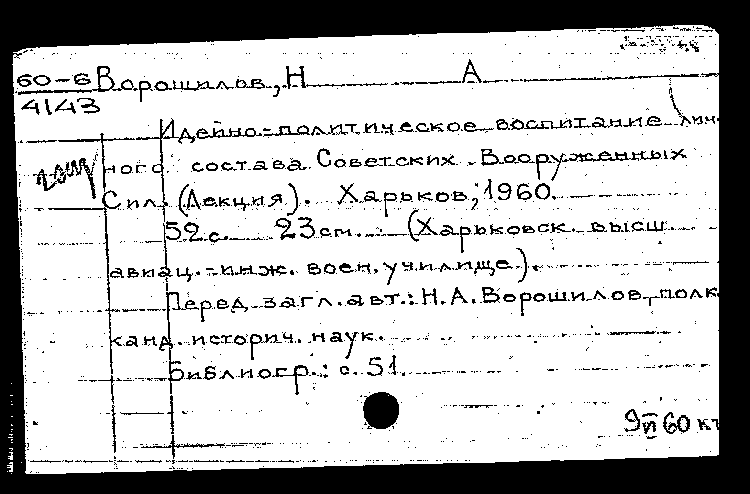 60-6 Ворошилов, Н А
4143
Идейно-политическое воспитание лич-
ного состава Советских Вооруженных
Сил. (Лекция). Харьков, 1960.
52 с. 23 см. (Харьковск. высш.
авиац.-инж. воен. училище).
Перед загл. авт.: Н.А. Ворошилов, полк.
канд. историч. наук.
Библиогр.: с. 51.
9 VI 60 кт